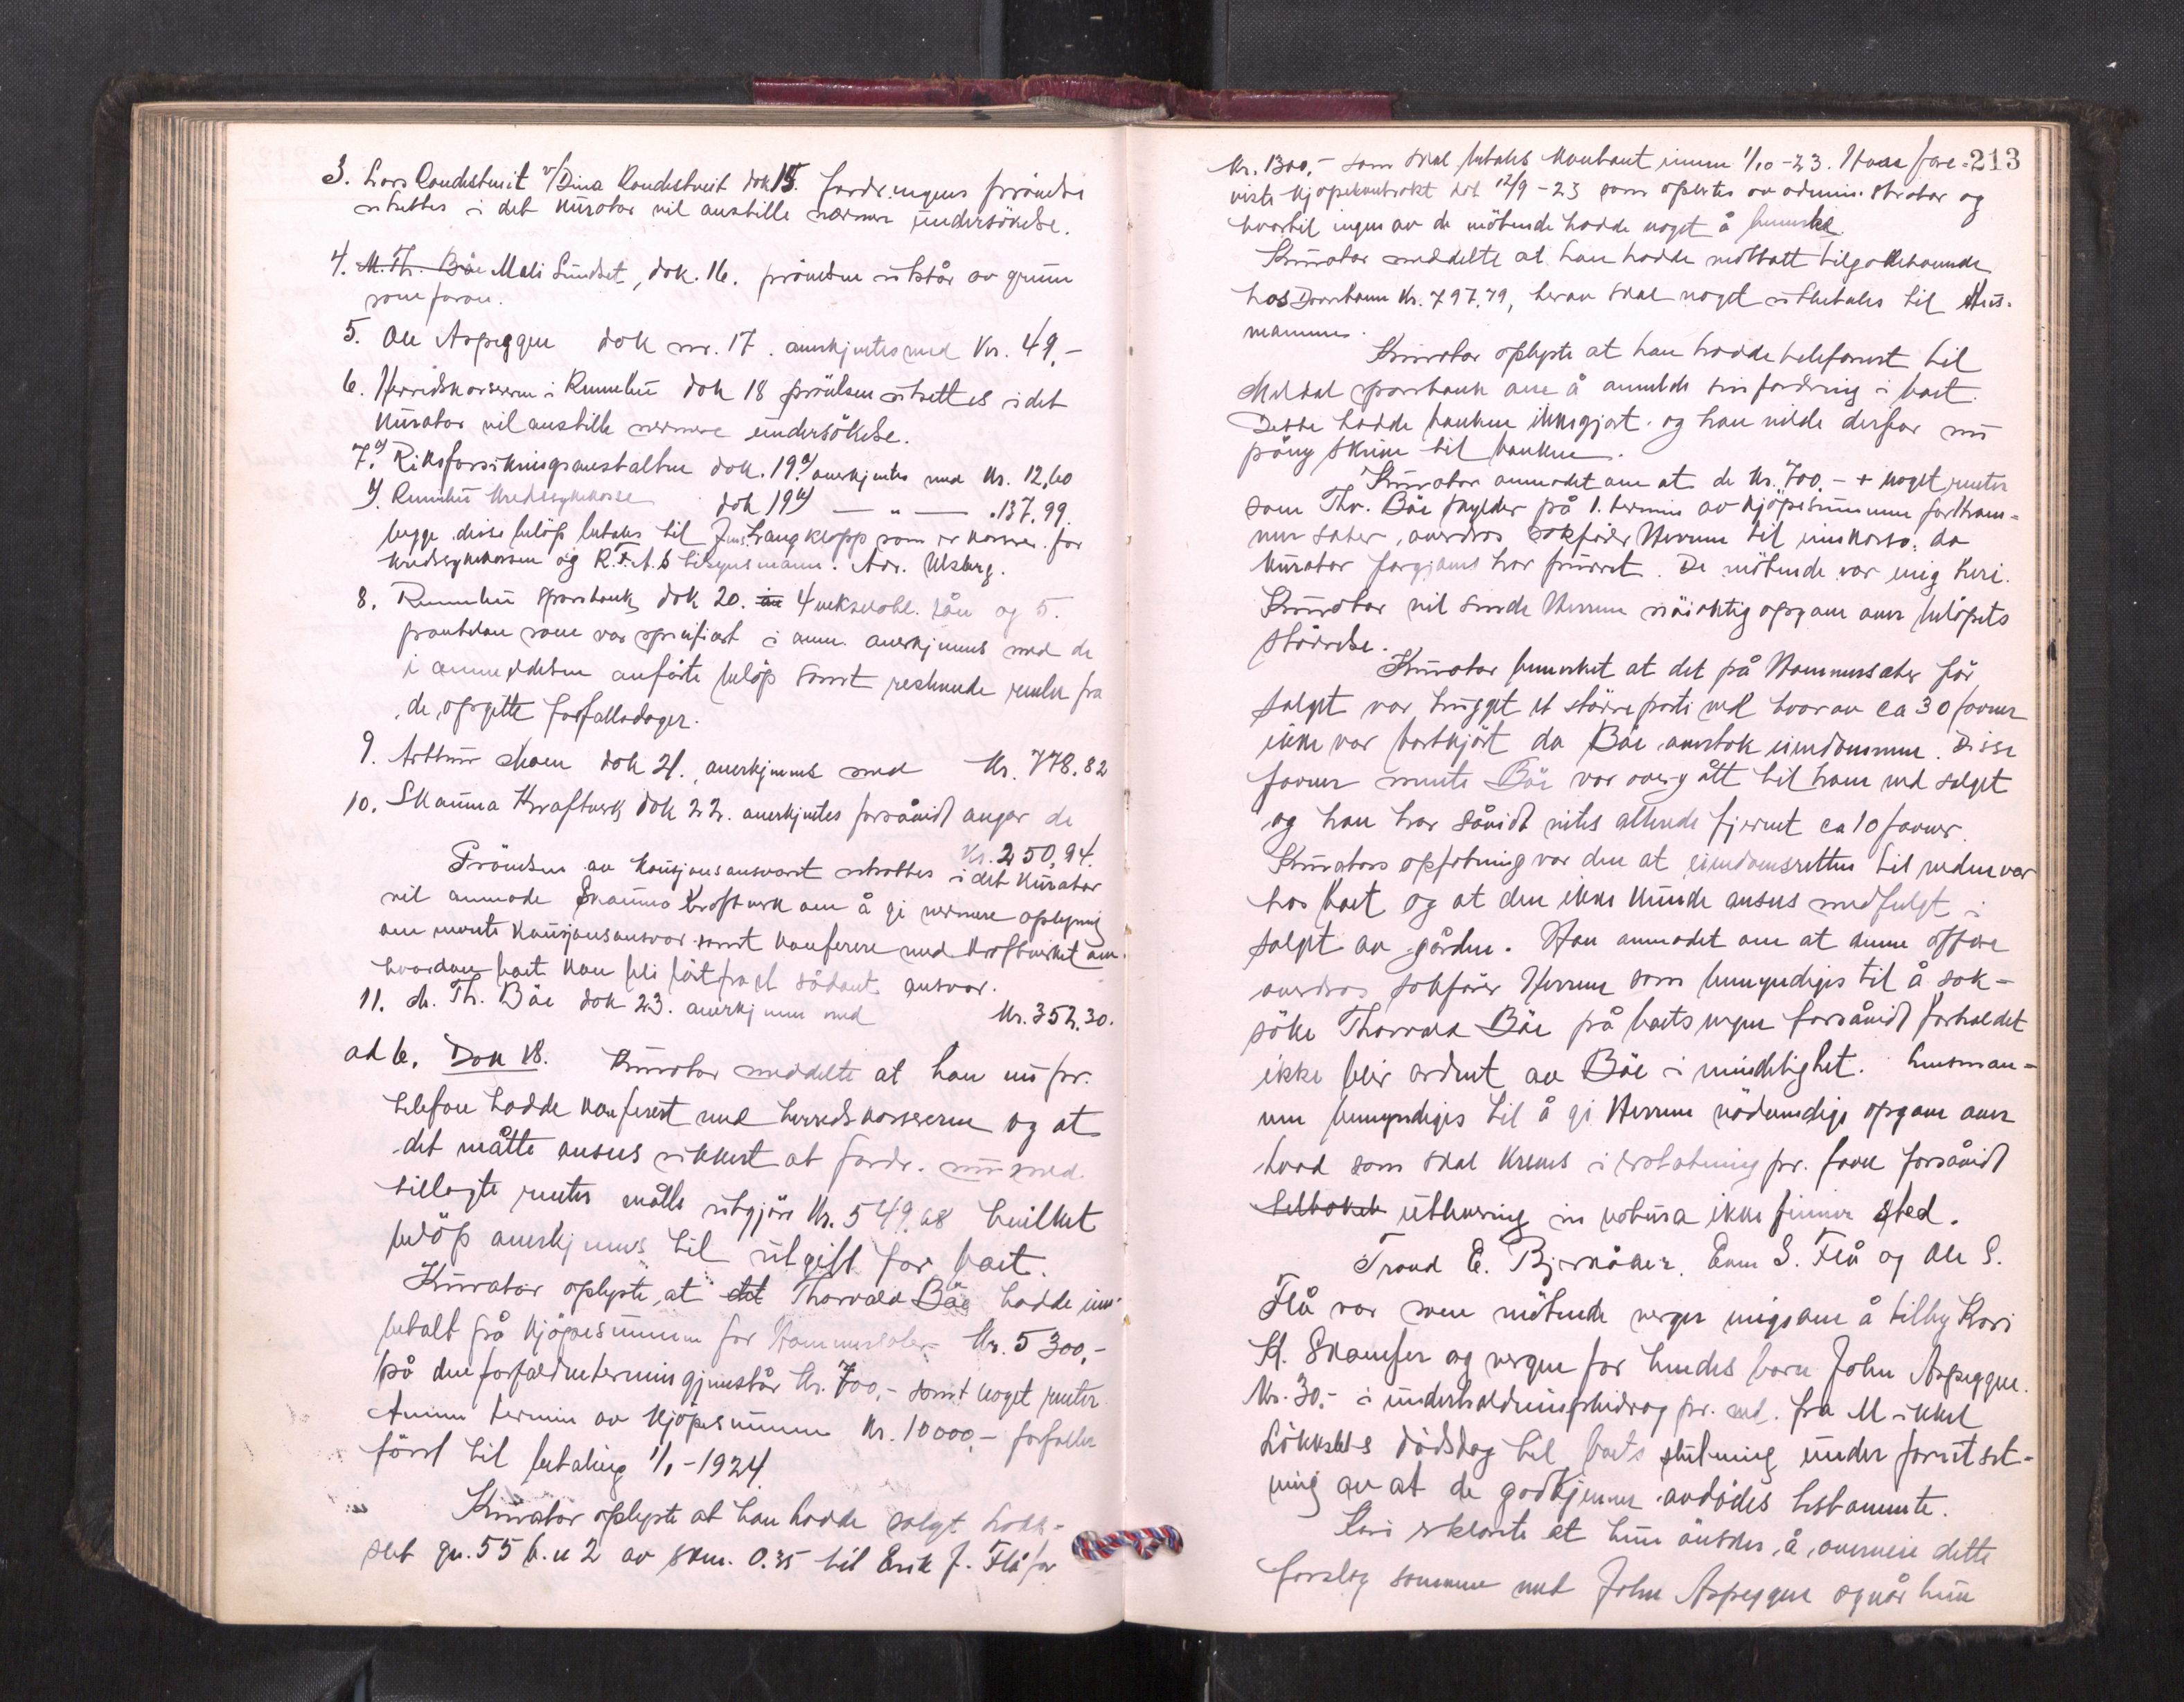 3. Lars Randistveit v/Dina Randistveit dok 15. fordringens prövelse
utsettes i det kurator vil anstille nærmere undersökelse.
4. M. Th. Bäe Mali Sundset, dok. 16. prövelsen utstår av grunn
som foran.
5. Ole Aspeggen dok nr. 17. anerkjentes med kr. 49,-
6. Herredskassereren i Rennebu dok 18 prövelsen utsettes i det
kurator vil anstille nærmere undersökelse.
7. a) Riksforsikringsanstalten dok. 19 a) anerkjentes med kr. 12,60
b) Rennebu kredssykekasse dok 19 b) — " — " 137,99.
begge disse belöp betales til Jens Langklopp som er kasserer for
kredssykekassen og R.F.A.s tilsynsmann. Adr. Ulsberg.
8. Rennebu sparebank, dok 20. 4 vekselobl. lån og 5.
pantelån som var spesifisert i anm. anerkjennes med de
i anmeldelsen anförte belöp samt reslerende renter fra
de opgitte forfallsdager.
9. Arthur Moen dok 21. anerkjennes med kr. 778,82
10. Skauma Kraftverk dok 22. anerkjentes forsåvidt angår de
kr. 250,94.
Prövelsen av kausjonsansvaret utsettes i det kurator
vil anmode Skauma Kraftverk om å gi nærmere oplysning
om mente kausjonsansvar samt konferere med kraftverket om
hvordan boet kan bli löst fra et sådant ansvar.
11. M. Th. Bäe dok 23. anerkjennes med kr. 352,30.
ad 6. Dok 18. Kurator meddelte at han nu pr.
telefon hadde konferert med herredskassereren og at
det måtte ansees sikkert at fordr. nu med
tillagte renter måtte utgjöre kr. 549.68 hvilket
belöp anerkjennes til utgift for boet.
Kurator oplyste, at det Thorvald Bäe hadde inn-
betalt på kjöpesummen for Hammersæter kr. 5300,-
på den forfaldne termin gjenstår kr. 700,- samt noget renter.
Annen termin av kjöpesummen kr. 10000,- forfaller
först til betaling 1/1-1924.
Kurator oplyste at han hadde solgt Lökk-
set gn. 55 b.n 2 av skm. 0.35 til Erik J. Flå for
213
kr. 1300,- som skal betales kontant innen 1/10-23. Han fore-
viste kjöpekontrakt dat 12/9-23 som oplestes av administrator og
hvortil ingen av de mötende hadde noget å bemerke.
Kurator meddelte at han hadde mottatt tilgodehavende
hos Doorhann kr. 797.79, herav skal noget utbetales til Hus-
mannen.
Kurator oplyste at han hadde telefonert til
Meldal sparebank om å anmelde sin fordring i boet.
Dette hadde banken ikke gjort og han vilde derfor nu
påny skrive til banken.
Kurator anmodet om at de kr. 700.- + noget renter
som Thv. Bäe skylder på 1. termin av kjöpesummen for Ham-
mersæter, overdros sakförer Herrem til innkasso, da
kurator forgjæves har purret. De mötende var enig heri.
Kurator vil sende Herrem nöiaktig opgave over belöpets
störrelse.
Kurator bemerket at det på Hammersæter för
salget var hugget et större parti ved hvorav ca 30 favner
ikke var bortkjört da Bäe overtok eiendommen. Disse
favner mente Bäe var overgått til ham ved salget
og han har såvidt vites allerede fjernet ca 10 favner.
Kurators opfatning var den at eiendomsretten til veden var
hos boet og at den ikke kunde ansees medfulgt i
salget av gården. Han anmodet om at denne affære
overdros sakförer Herrem som bemyndiges til å sak-
söke Thorvald Bäe på boets vegne forsåvidt forholdet
ikke blir ordnet av Bäe i mindelighet. Lensman-
nen bemyndiges til å gi Herrem nödvendige opgave over
hvad som skal kreves i erstatning pr. favn forsåvidt
utlevering in natura ikke finner sted.
Trond E. Bjerkåker. Even S. Flå og Ole S.
Flå var som mötende verger enig om å tilby Kari
K. Skamfer og vergen for hendes barn John Aspeggen
kr. 30,- i underholdningsbidrag pr. md. fra Mikkel
Lökksets dödsdag til boets slutning under forutset-
ning av at de godkjenner avdödes testamente.
Kari erklærte at hun önsker å overveie dette
forslag sammen med John Aspeggen og når hun